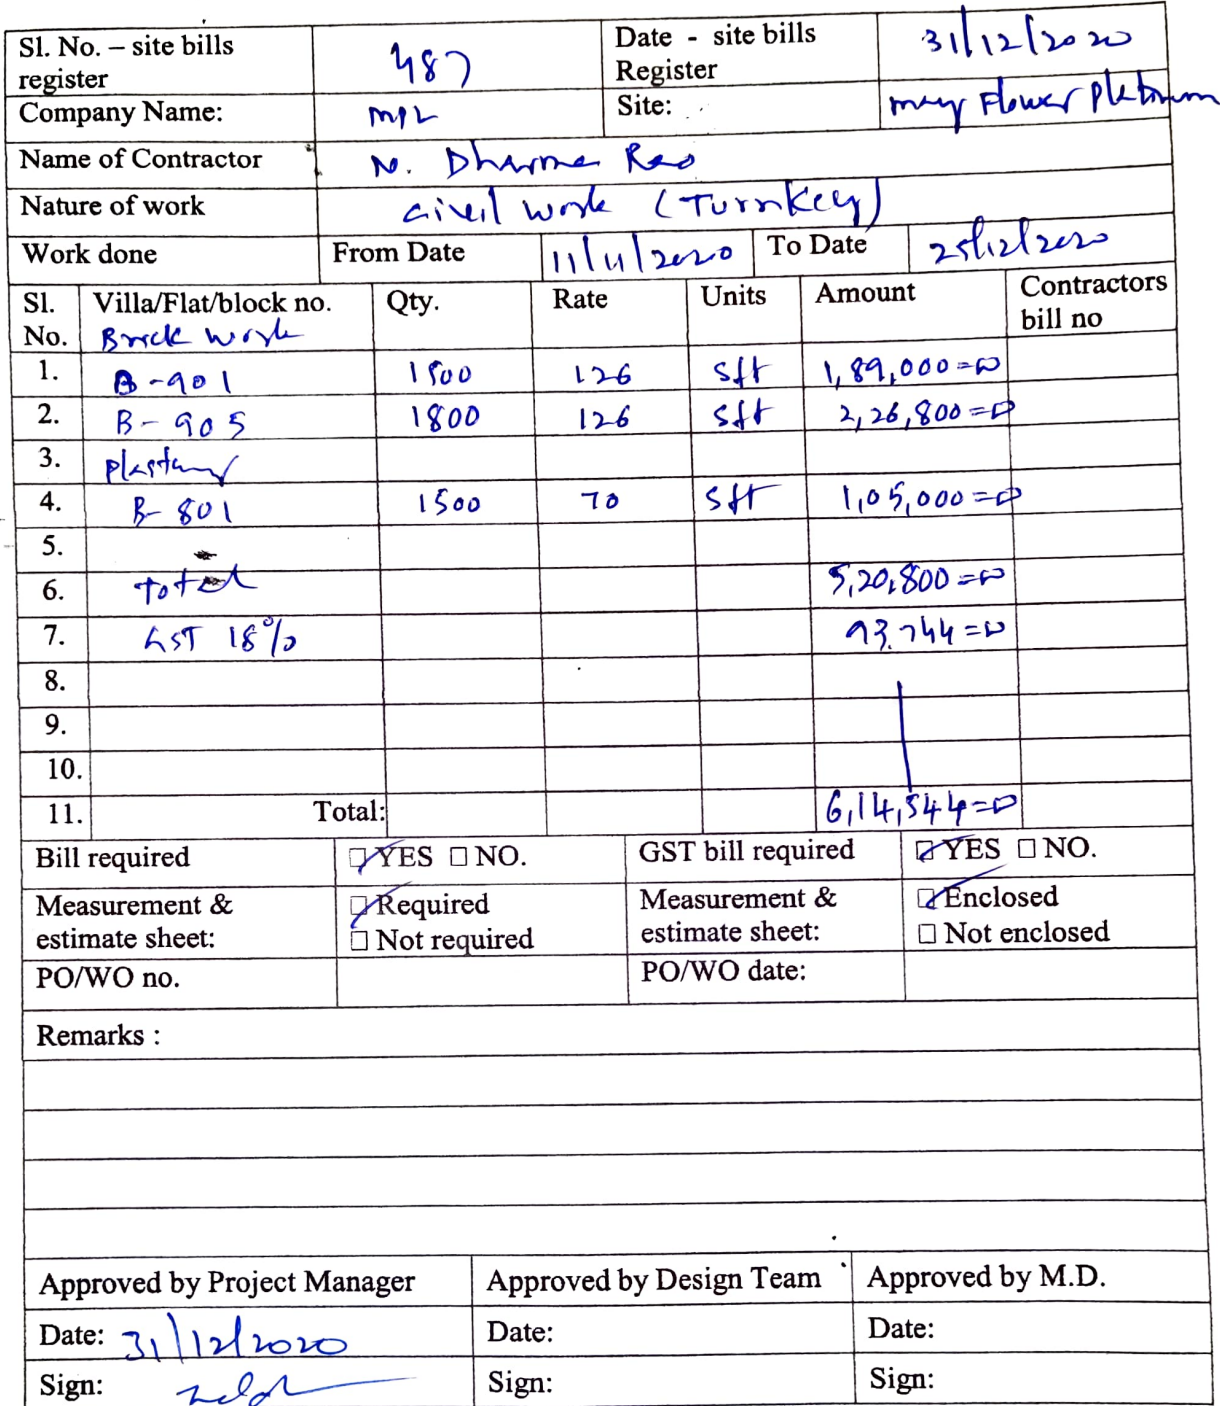 Sl. No. – site bills register 487 Date - site bills Register 31/12/2020
Company Name: MPL Site: may Flower Platinum
Name of Contractor N. Dharma Rao
Nature of work civil work (Turnkey)
Work done From Date 11/11/2020 To Date 25/12/2020
Sl. No. Villa/Flat/block no. Qty. Rate Units Amount Contractors bill no
Brick work
1. B-901 1500 126 sft 1,89,000=00
2. B-905 1800 126 sft 2,26,800=00
3. Plastering
4. B-801 1500 70 sft 1,05,000=00
5.
6. Total 5,20,800=00
7. GST 18% 93,744=00
8.
9.
10.
11. Total: 6,14,544=00
Bill required ☑ YES ☐ NO. GST bill required ☑ YES ☐ NO.
Measurement & estimate sheet: ☑ Required ☐ Not required Measurement & estimate sheet: ☑ Enclosed ☐ Not enclosed
PO/WO no. PO/WO date:
Remarks :
Approved by Project Manager Approved by Design Team Approved by M.D.
Date: 31/12/2020 Date: Date:
Sign: Sign: Sign: